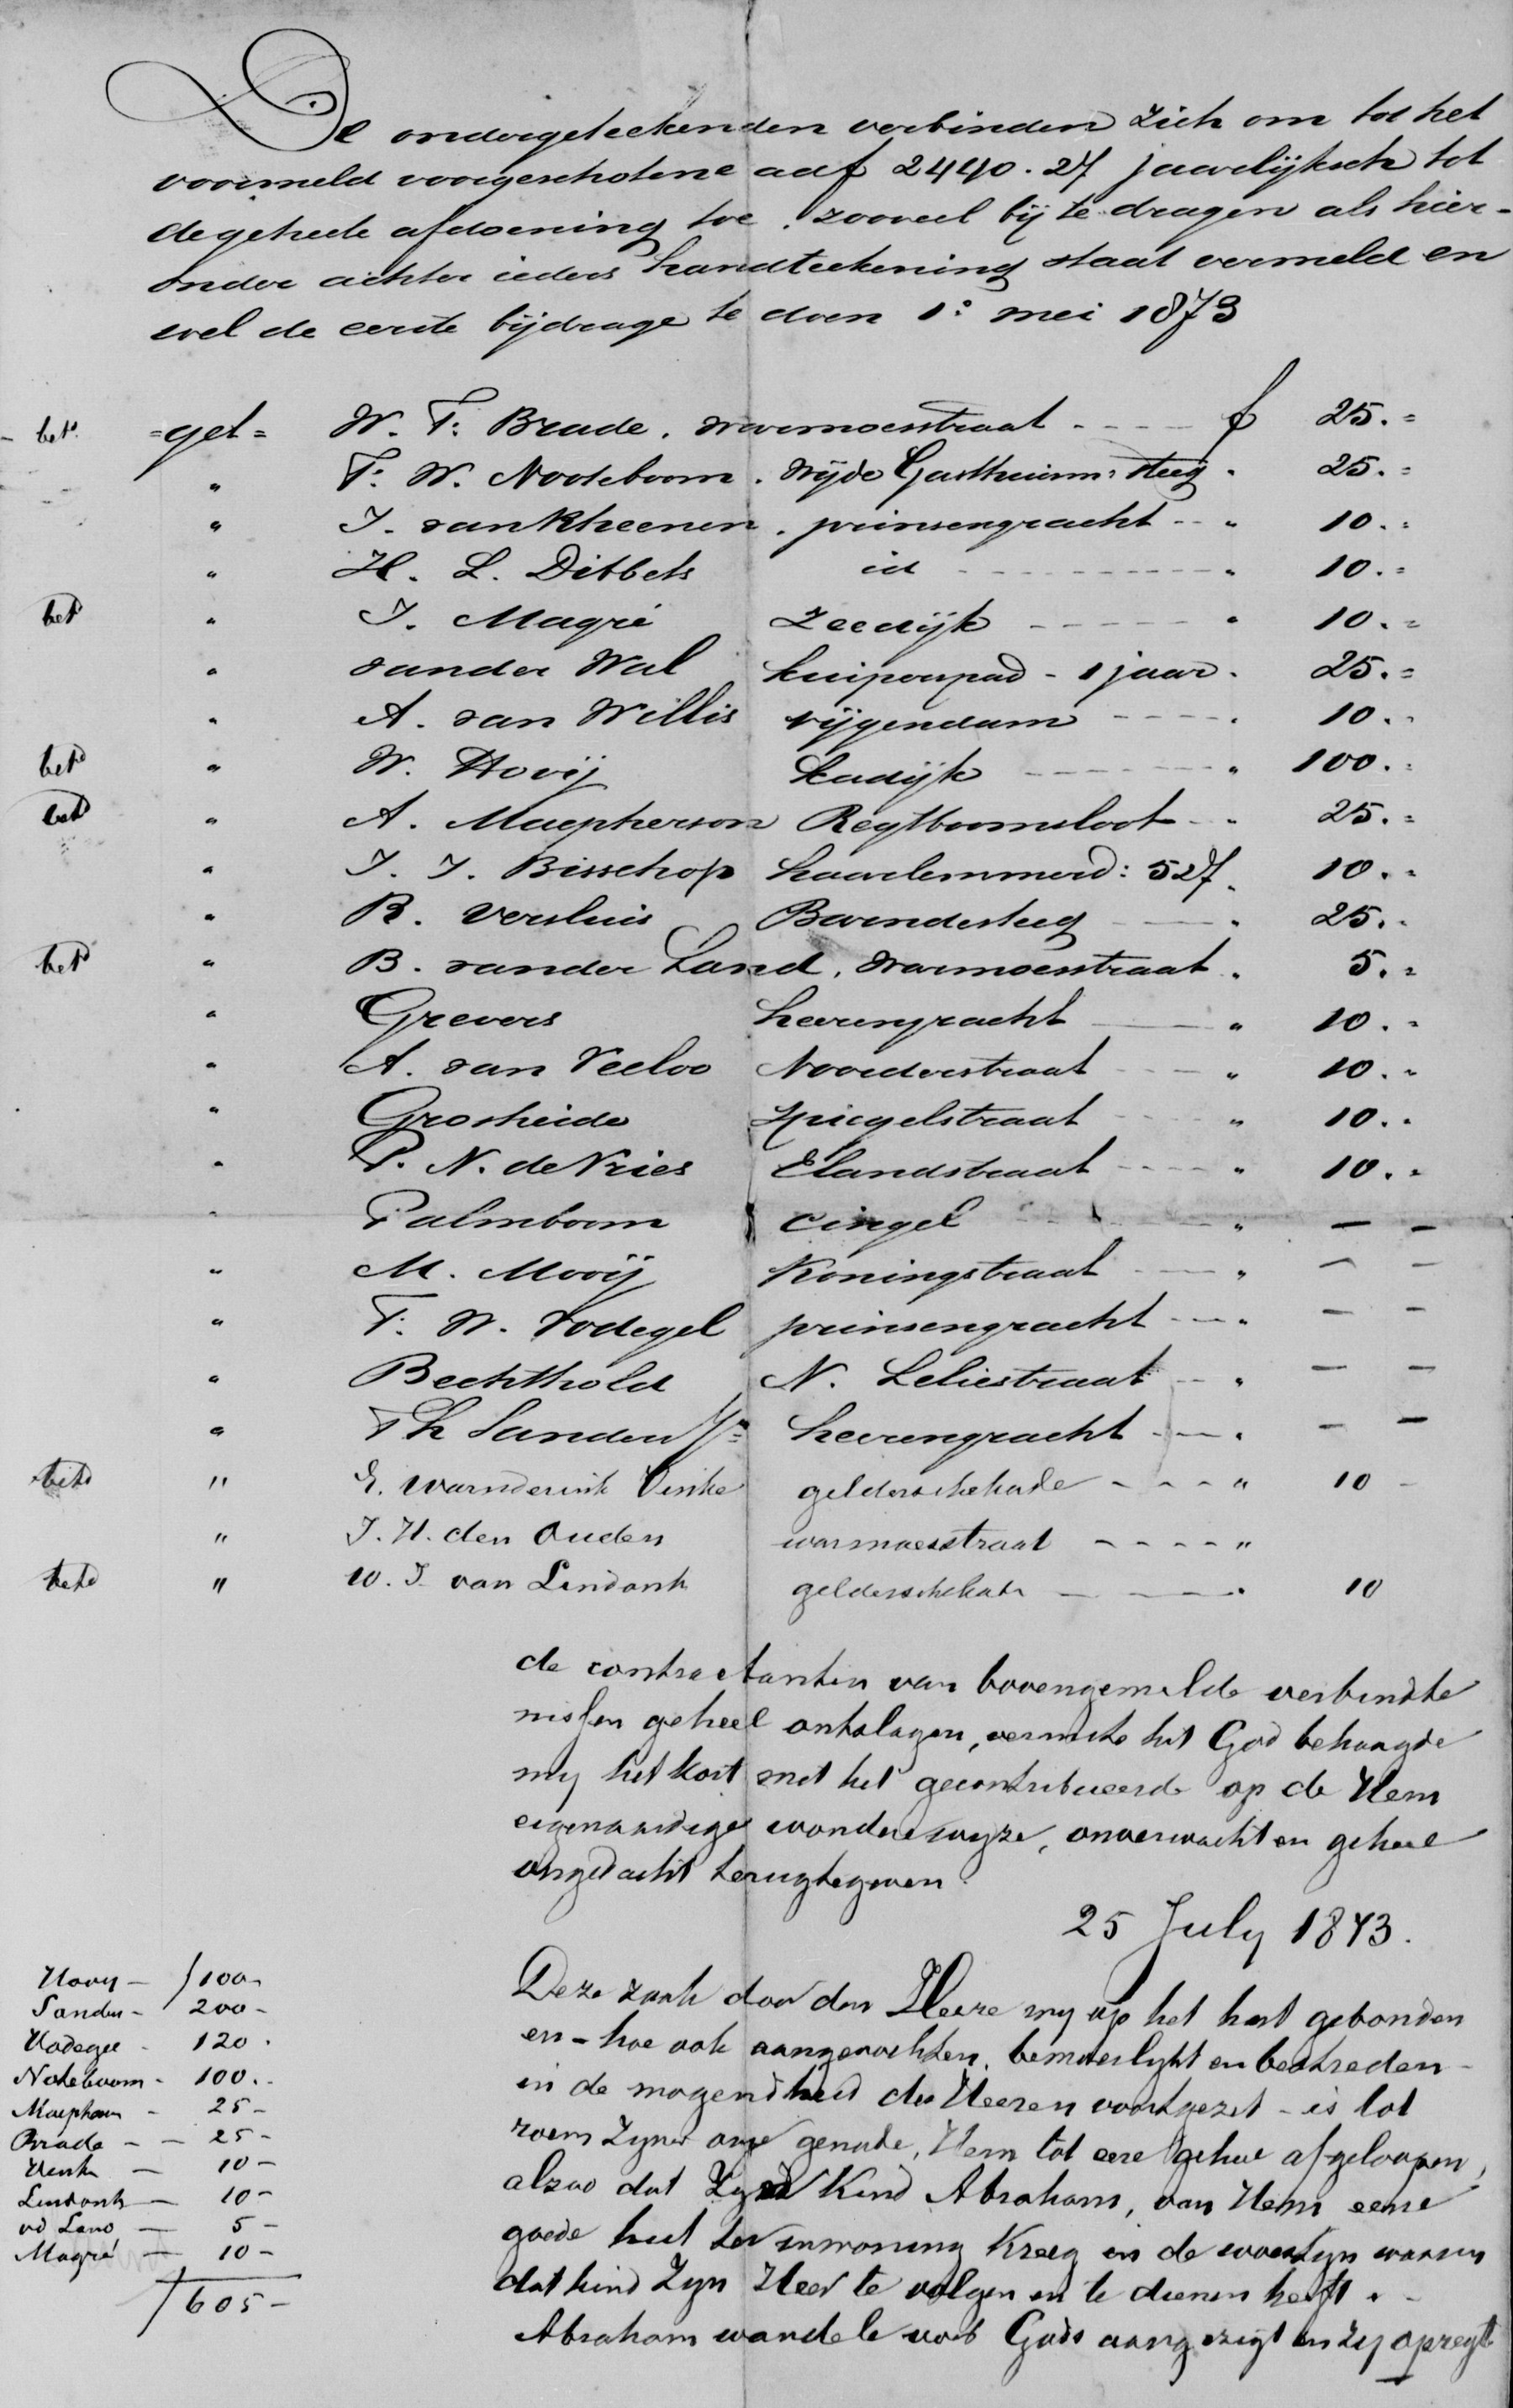 De ondergeteekenden verbinden zich om tot het
voormeld voorgeschotene ad f 2440.27 jaarlijksch tot
de geheele afdoening toe, zooveel bij te dragen als hier-
onder achter ieders handteekening staat vermeld en
wel de eerste bijdrage te doen 1º mei 1873
betd =get= W. F. Brade. warmoesstraat - - - - f 25.=
" F. W. Nooteboom. Wijde Gasthuism: steeg " 25.=
" J. van Rheenen. prinsengracht - - " 10.=
" H. L. Dibbets id - - - - " 10.=
betd " J. Magré Zeedijk - - - - " 10.=
" van der Wal kuiperspad - 1 jaar " 25.=
" A. van Willis vijgendam - - - - " 10.=
betd " W. Hovij kadijk - - - - " 100.=
betd " A. Macpherson Regtboomsloot - - " 25.=
" J. J. Bisschop haarlemmerd: 527 " 10.=
" R. Versluis Barndesteeg - - " 25.=
betd " B. van der Land, warmoesstraat " 5.=
" Grevers heerengracht - - " 10.=
" A. van Veeloo Noorderstraat - - " 10.=
" Grosheide Spiegelstraat - - " 10.=
" P. N. de Vries Elandstraat - - - - " 10.=
" Palmboom cingel - - - - " — —
" M. Mooij Koningstraat - - " — —
" F. W. Vodegel prinsengracht - - " — —
" Bechthold N. Leliestraat - - " — —
" Th Sanders Jr heerengracht - - " — —
betd " E. Warnderink Vinke gelderschekade - - - - " 10 -
" J. H. den Ouden warmoesstraat - - - - "
betd " W. J. van Lindonk gelderschekade - - " 10
de contractanten van bovengemelde verbindte
nissen geheel ontslagen, vermits het God behaagde
my het kort met het gecontribueerde op de Hem
eigenaardige wondere wyze, onverwacht en geheel
ongedacht terugtegeven.
25 July 1873.
Deze zaak door den Heere my op het hart gebonden
en - hoe ook aangevochten, bemoeilykt en bestreden -
in de mogendheid des Heeren voortgezet - is tot
roem Zyner genade, Hem tot eere geheel afgeloopen,
alzoo dat Zyn Kind Abraham, van Hem eene
goede hut ter inwoning kreeg in de woestyn waarin
dat kind Zyn Heer te volgen en te dienen heeft. -
Abraham wandele voor Gods aangezigt en zy opregt
Hovy - f 100 -
Sanders - 200 -
Vodegel - 120 -
Noteboom - 100 -
Macpherson - 25 -
Brade - - 25 -
Vink - 10 -
Lindonk - 10 -
vd Land - 5 -
Magré - 10 -
f 605 -